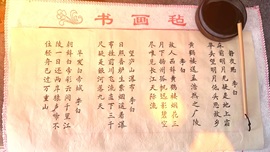 书画毡
静夜思 李白
床前明月光疑是地上霜
举头望明月低头思故乡
黄鹤楼送孟浩然之广陵
李白
故人西辞黄鹤楼烟花三
月下扬州孤帆远影碧空
尽唯见长江天际流
望庐山瀑布 李白
日照香炉生紫烟遥看瀑
布挂前川飞流直下三千
尺疑是银河落九天
早发白帝城 李白
朝辞白帝彩云间千里江
陵一日还两岸猿声啼不
住轻舟已过万重山